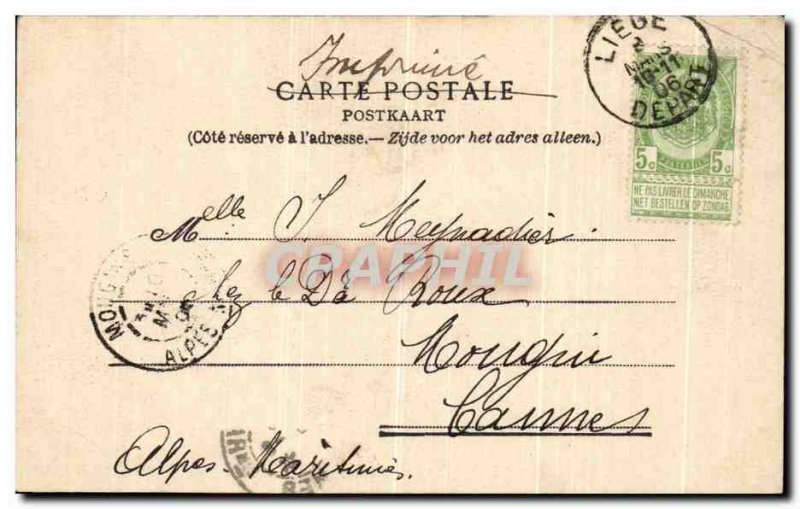 LIÈGE
10-11
06
DEPART
Imprimé
CARTE POSTALE
POSTKAART
(Côté réservé à l'adresse.— Zijde voor het adres alleen.)
5c 5c
NE PAS LIVRER LE DIMANCHE
NIET BESTELLEN OP ZONDAG
Melle J. Meynadier
CPARAPHIL
chez le Dr Roux
Mougin
Cannes
Alpes-Maritimes.
ALPES